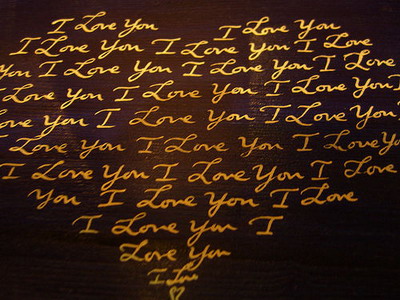 I Love You I Love You
I Love You I Love You I Love
You I Love You I Love You I Love
I Love You I Love You I Love You I
Love You I Love You I Love You
Love You I Love You I Love You
I Love You I Love You I Love
You I Love You I Love
I Love You I
Love You
I Love